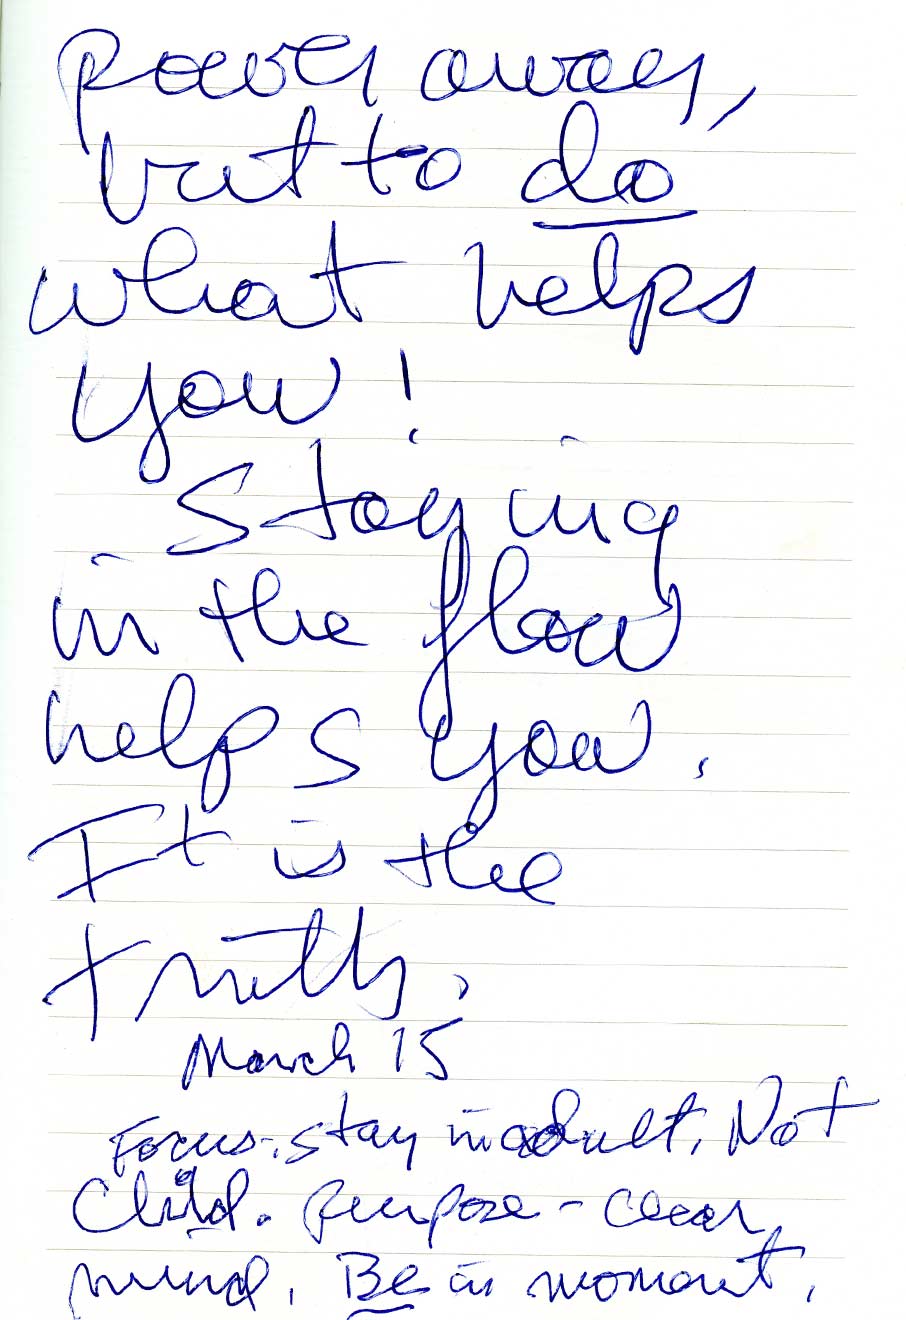 Power away,
but to do
what helps
you!
Staying
in the flow
helps you.
It is the
truth.
March 15
Focus: stay in adult, Not
Child. Purpose - clear
mind. Be in moment.